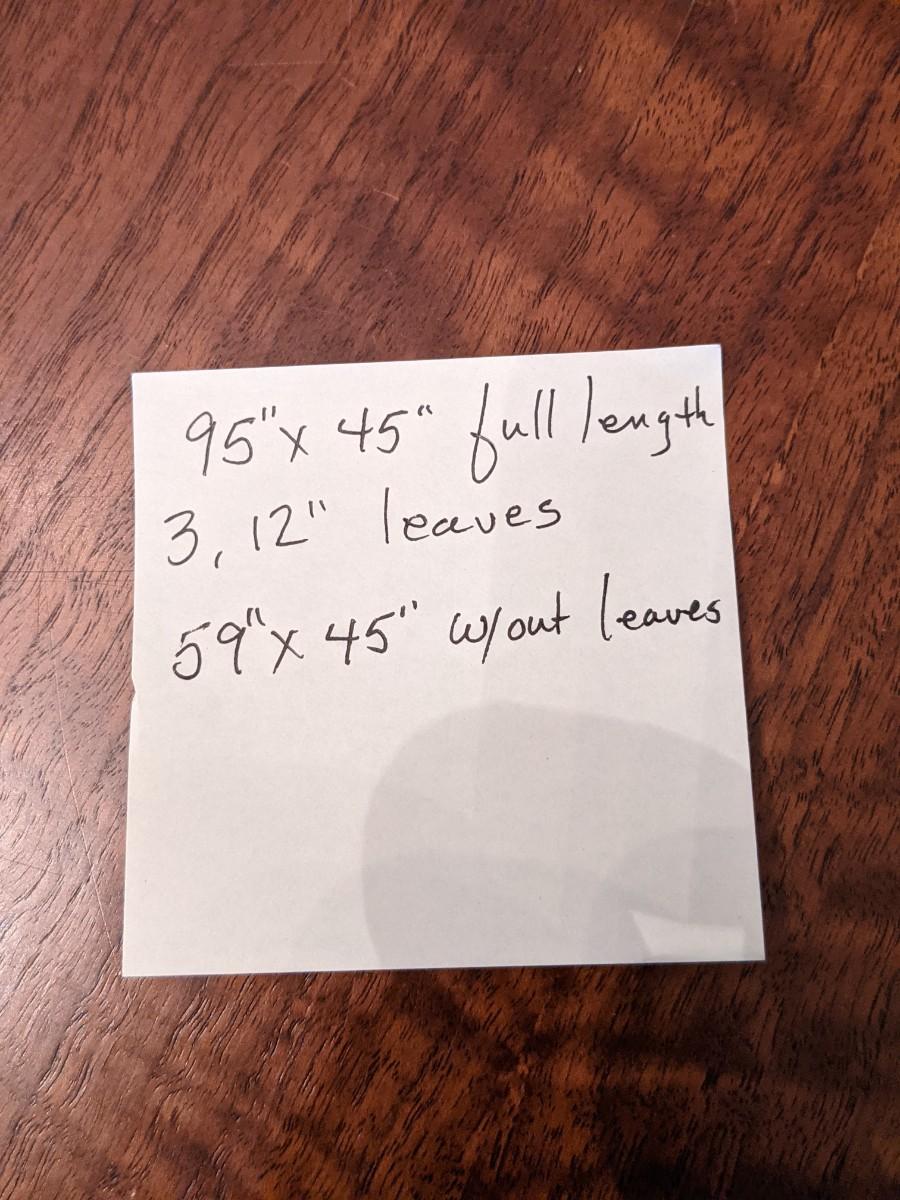 95" x 45" full length
3, 12" leaves
59" x 45" w/out leaves